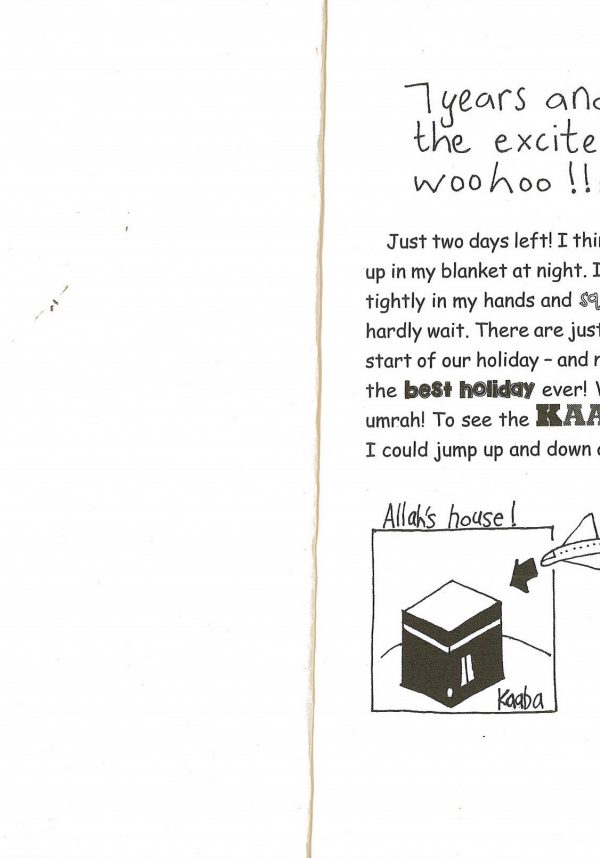 7 years and
the excite
woohoo !!
Just two days left! I thi
up in my blanket at night. I
tightly in my hands and sq
hardly wait. There are just
start of our holiday – and
the best holiday ever!
umrah! To see the KAA
I could jump up and down
Allah's house!
Kaaba